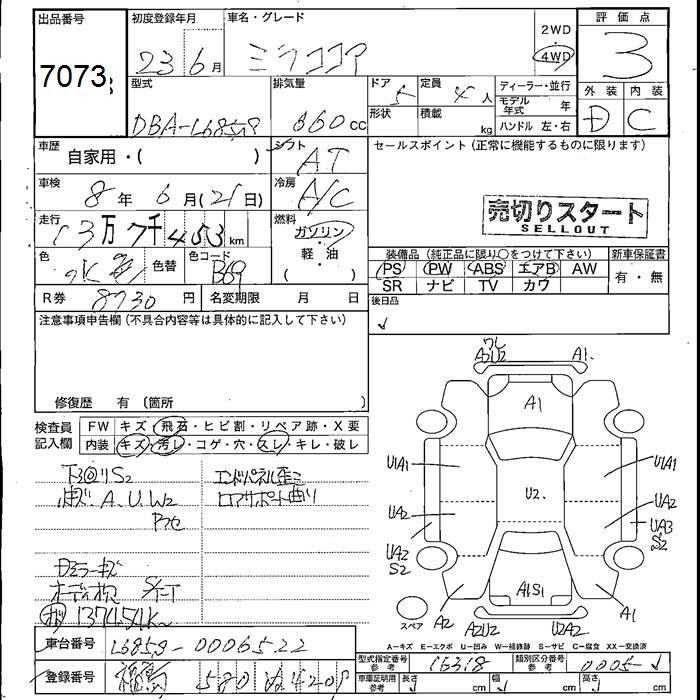 出品番号 初度登録年月 車名・グレード 2WD 4WD 評価点
7073 23 6月 ミラココア 3
型式 排気量 ドア 5 定員 4人 ディーラー・並行 外装 内装
形状 積載 kg モデル年式 年
DBA-L685S 660cc ハンドル 左・右 D C
車歴 自家用・( ) シフト AT セールスポイント(正常に機能するものに限ります)
車検 8年 6月(21日) 冷房 A/C
売切りスタート
SELLOUT
走行 13万7千453km 燃料 ガソリン・軽・油 ( )
色 水色 色替 色コード B69
装備品(純正品に限り○をつけて下さい) 新車保証書
PS PW ABS エアB AW 有・無
SR ナビ TV カワ
R券 8730円 名変期限 月 日 後日品
注意事項申告欄(不具合内容等は具体的に記入して下さい)
修復歴 有 (箇所
検査員記入欄 FW キズ・飛石・ヒビ割・リペア跡・X要
内装 キズ・汚レ・コゲ・穴・スレ・キレ・破レ
下回りS2 エンドパネル歪ミ
A、U、W2 ロアサポート曲り
ドアミラーキズ
137454K
ワレ
A2U2 A1
A1
U1A1 U1A1
U2
UA2 UA2
UA3
S2
UA2
S2
A1S1
スペア A2 A2U2 U2A2 A1
A-キズ E-エクボ U-凹み W-補修跡 S-サビ C-腐食 XX-交換済
車台番号 L685S-0006522
型式指定番号 参考 16318 類別区分番号 参考 0005
登録番号 福島 580 4209
車庫証明用 参考 長さ cm 幅 cm 高さ cm